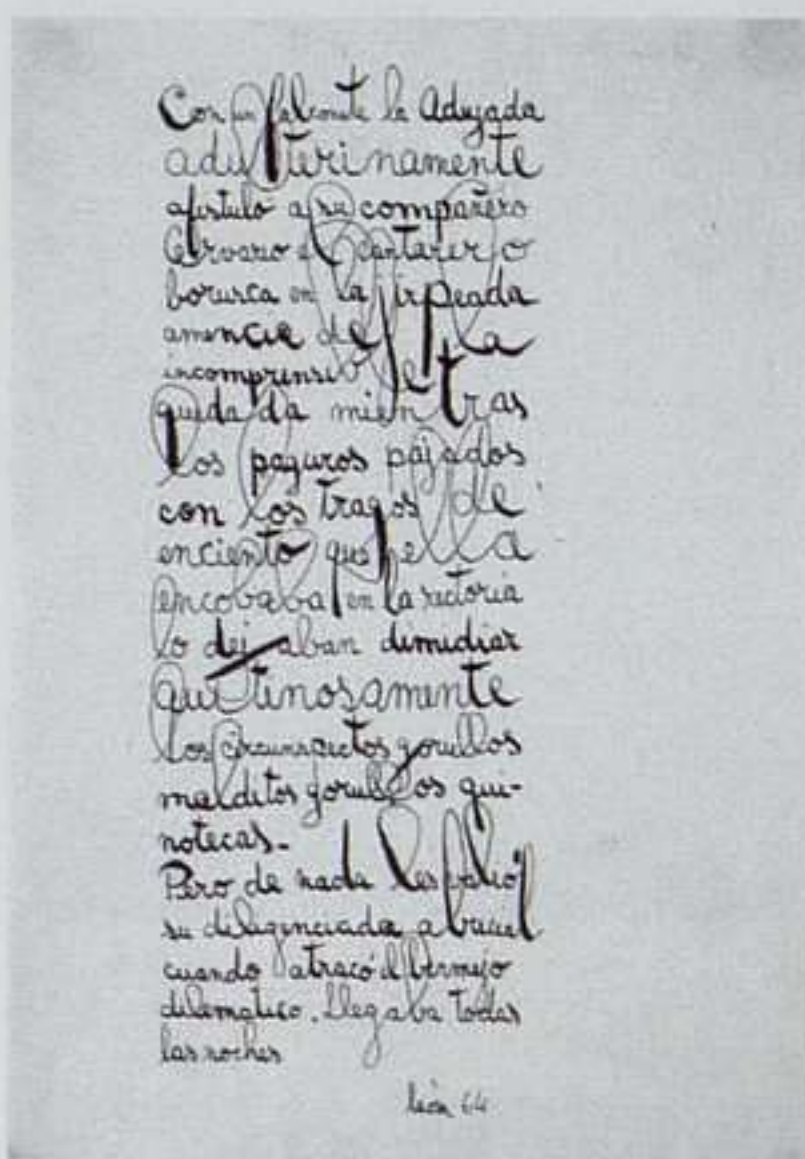 Con un falconete la Adujada
adulterinamente
afistuló a su compañero
Cervario el cantarero
borusca en la jirpeada
amencia de la
incomprensi
quedada mientras
los paguros pajados
con los tragos de
enciento que ella
encobaba en la rectoria
lo dejaban dimidiar
quitinosamente
los circunspectos gorullos
malditos gorullos qui-
notecas.
Pero de nada les valió
su diligenciada
cuando atracó el bermejo
dilematico. Llegaba todas
las noches
león 64